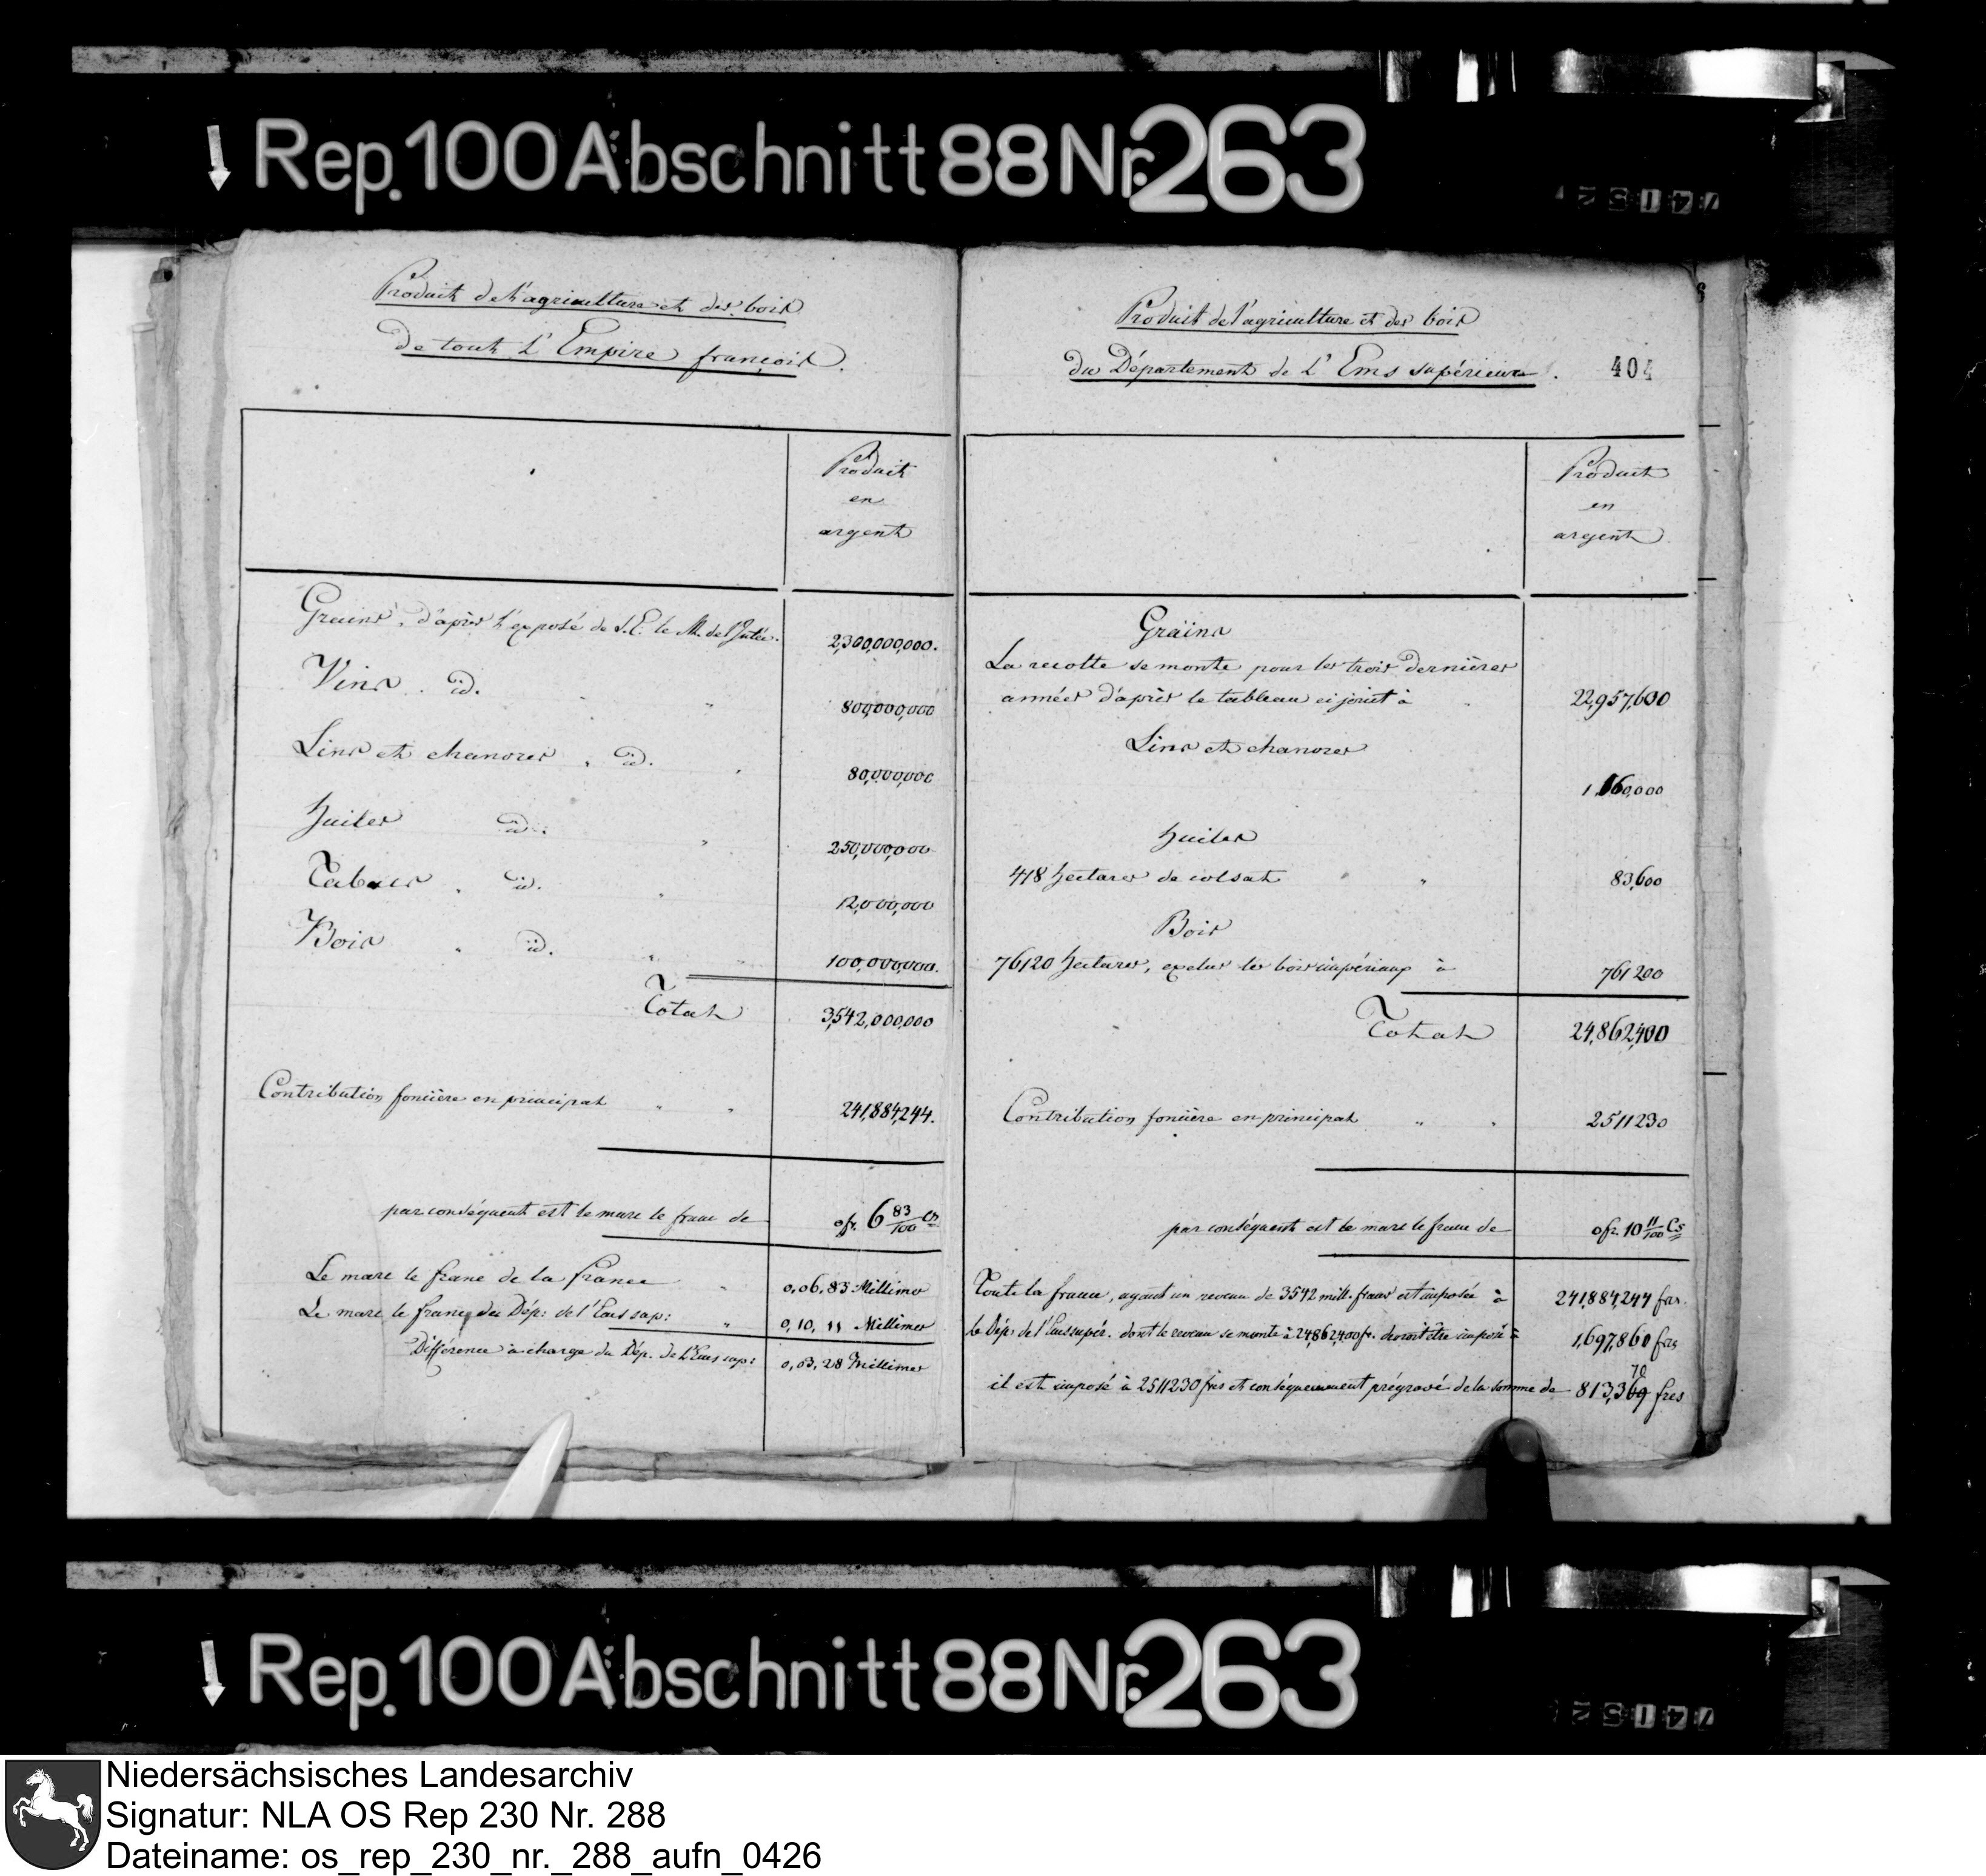 Rep. 100 Abschnitt 88 Nr. 263
Produit de l'agriculture et des bois
de tout l'Empire françois.
Produit
en
argent
Grains, d'après l'exposé de S.E. le M. de l'Intér. 2,300,000,000.
Vins . id. 800,000,000
Lins et chanvres . id. 80,000,000
Huiles id. 250,000,000
Tabacs . id. 12,000,000
Bois " id. 100,000,000.
Total 3,542,000,000
Contribution foncière en principal " " 241,884,244.
par conséquent est le marc le franc de 0 fr. 6 83/100 Cs
Le marc le franc de la france " 0,06,83 Millimes
Le marc le franc du Dép: de l'Ems sup: " 0,10,11 Millimes
Différence à charge du Dép. de l'Ems sup: 0,03,28 Millimes
Produit de l'agriculture et des bois
du Département de l'Ems supérieur.
404
Produit
en
argent
Grains
La recolte se monte pour les trois dernières
années d'après le tableau ci joint à 22,957,600
Lins et chanvres
1,060,000
Huiles
418 Hectares de colsat " 83,600
Bois
76120 Hectares, exclus les bois impériaux à 761200
Total 24,862,400
Contribution foncière en principal " " 2511230
par conséquent est le marc le franc de 0 fr. 10 11/100 Cs
Toute la france, ayant un revenu de 3542 mill. francs est imposée à 241,884,244 frs.
le Dép: de l'Ems supér. dont le revenu se monte à 24,862,400 fr. devroit être imposé à 1,697,860 frs
70
il est imposé à 2511230 frs et conséquemment prégravé de la somme de 813,369 frcs
Rep. 100 Abschnitt 88 Nr. 263
Niedersächsisches Landesarchiv
Signatur: NLA OS Rep 230 Nr. 288
Dateiname: os_rep_230_nr._288_aufn_0426